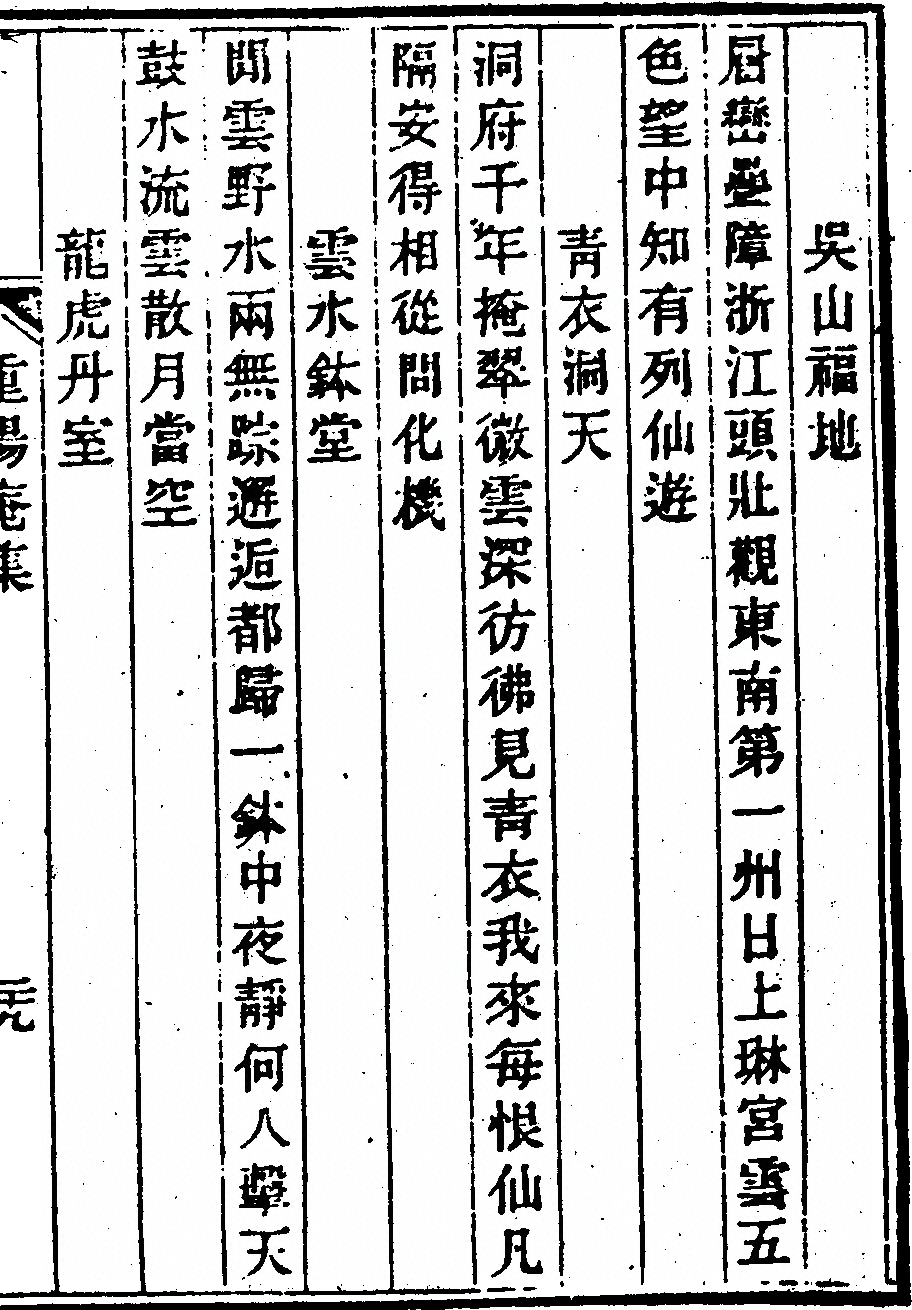 吳山福地
層巒疊障浙江頭壯觀東南第一州日上琳宮雲五
色望中知有列仙遊
青衣洞天
洞府千年掩翠微雲深彷彿見青衣我來每恨仙凡
隔安得相從問化機
雲水鉢堂
閒雲野水兩無踪邂逅都歸一鉢中夜靜何人擊天
鼓水流雲散月當空
龍虎丹室
重陽庵集